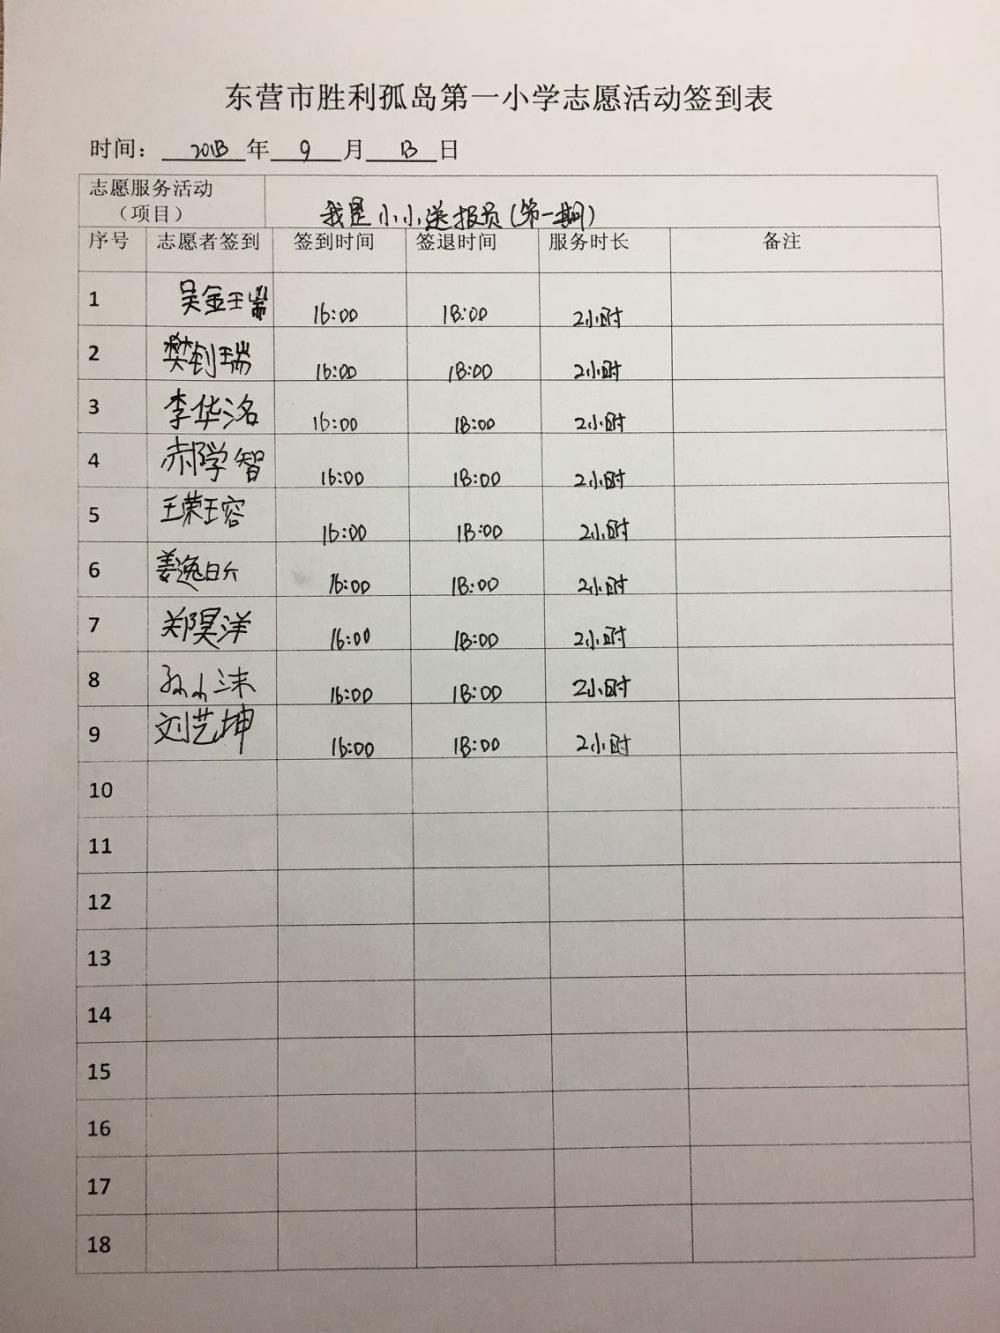 东营市胜利孤岛第一小学志愿活动签到表
时间： 2018 年 9 月 13 日
志愿服务活动（项目） 我是小小送报员（第一期）
序号 志愿者签到 签到时间 签退时间 服务时长 备注
1 吴金瑞 16:00 18:00 2小时
2 樊钊瑞 16:00 18:00 2小时
3 李华洺 16:00 18:00 2小时
4 郝学智 16:00 18:00 2小时
5 王荣瑢 16:00 18:00 2小时
6 姜逸昕 16:00 18:00 2小时
7 郑昊洋 16:00 18:00 2小时
8 孙小沫 16:00 18:00 2小时
9 刘艺坤 16:00 18:00 2小时
10
11
12
13
14
15
16
17
18